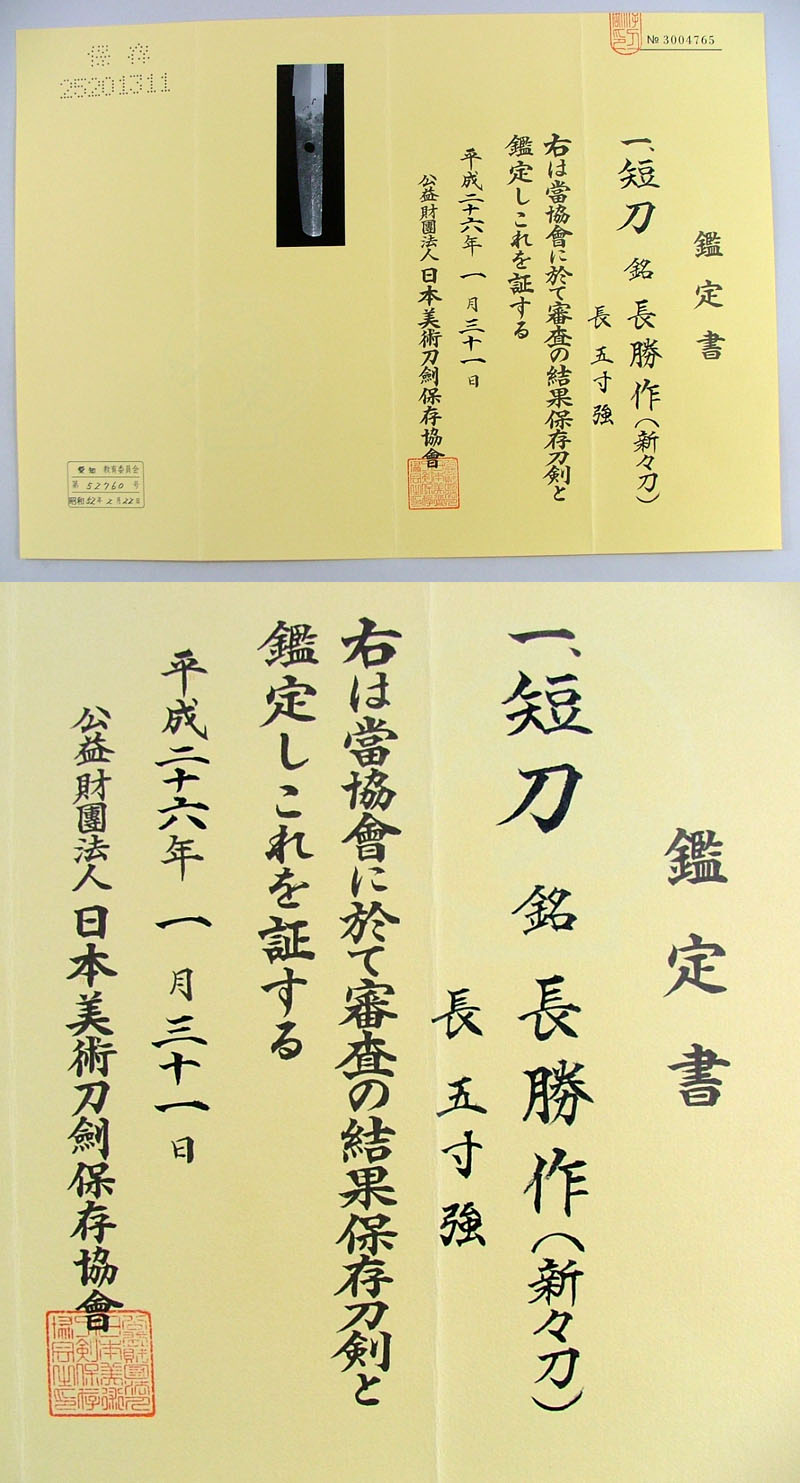 № 3004765
鑑定書
一、短刀 銘 長勝作(新々刀)
長 五寸強
右は當協會に於て審査の結果保存刀剣と
鑑定しこれを証する
平成二十六年 一月三十一日
公益財團法人 日本美術刀劍保存協會
保存
25201311
愛知 教育委員会
第 52760 号
昭和52年2月22日
鑑定書
一、短刀 銘 長勝作(新々刀)
長 五寸強
右は當協會に於て審査の結果保存刀剣と
鑑定しこれを証する
平成二十六年 一月三十一日
公益財團法人 日本美術刀劍保存協會